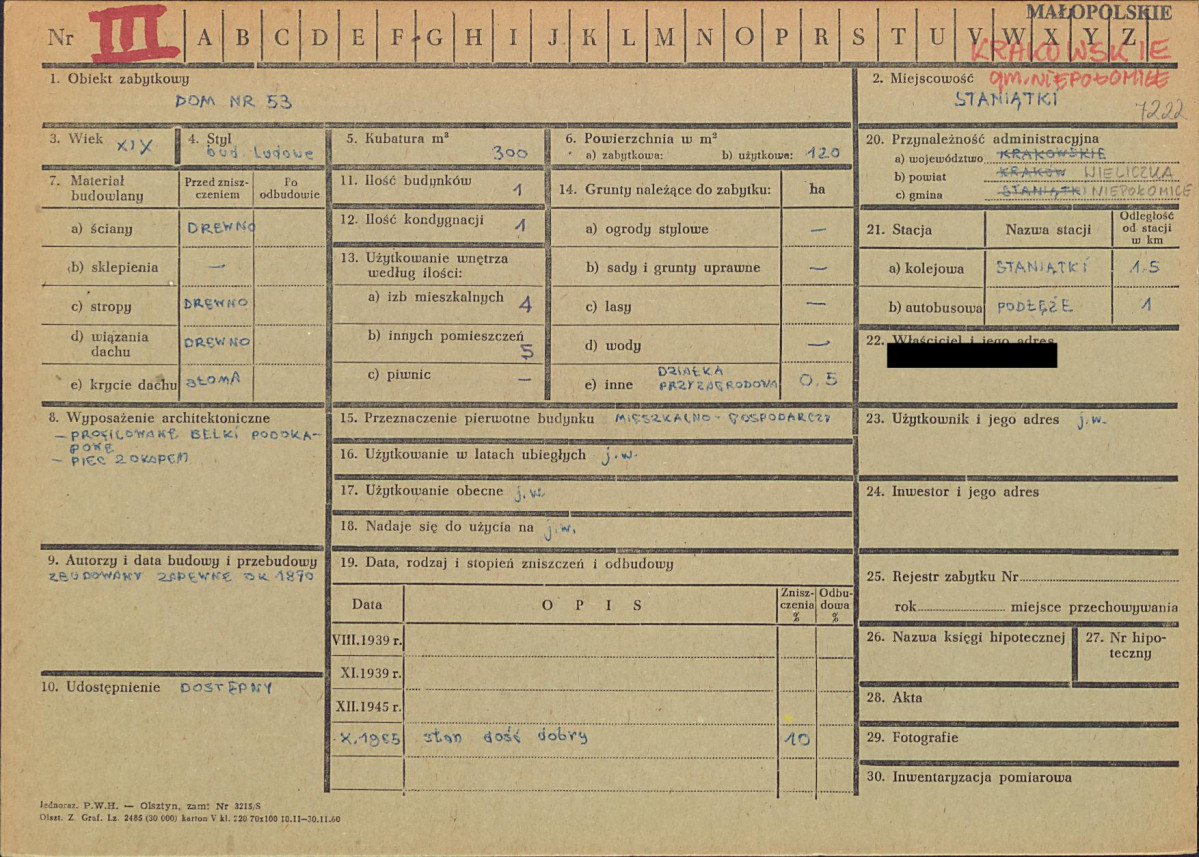 MAŁOPOLSKIE
Nr III A B C D E F G H I J K L M N O P R S T U V W X Y Z
KRAKOWSKIE
gm. NIEPOŁOMICE
1. Obiekt zabytkowy
DOM NR 53
2. Miejscowość
STANIĄTKI
7222
3. Wiek XIX
4. Styl
bud. ludowe
5. Kubatura m³
300
6. Powierzchnia w m²
a) zabytkowa: b) użytkowa: 120
7. Materiał budowlany
Przed zniszczeniem
Po odbudowie
a) ściany DREWNO
b) sklepienia —
c) stropy DREWNO
d) wiązania dachu DREWNO
e) krycie dachu słoma
8. Wyposażenie architektoniczne
— PROFILOWANE BELKI PODOKA-
POWE
— PIEC Z OKAPEM
9. Autorzy i data budowy i przebudowy
ZBUDOWANY ZAPEWNE OK 1870
10. Udostępnienie DOSTĘPNY
11. Ilość budynków 1
12. Ilość kondygnacji 1
13. Użytkowanie wnętrza
według ilości:
a) izb mieszkalnych 4
b) innych pomieszczeń 5
c) piwnic —
14. Grunty należące do zabytku: ha
a) ogrody stylowe —
b) sady i grunty uprawne —
c) lasy —
d) wody —
e) inne DZIAŁKA PRZYZAGRODOWA 0.5
15. Przeznaczenie pierwotne budynku MIESZKALNO-GOSPODARCZY
16. Użytkowanie w latach ubiegłych j.w.
17. Użytkowanie obecne j.w.
18. Nadaje się do użycia na j.w.
19. Data, rodzaj i stopień zniszczeń i odbudowy
Data O P I S Zniszczenia % Odbudowa %
VIII.1939 r.
XI.1939 r.
XII.1945 r.
X.1965 stan dość dobry 10
20. Przynależność administracyjna
a) województwo KRAKOWSKIE
b) powiat KRAKÓW WIELICZKA
c) gmina STANIĄTKI NIEPOŁOMICE
21. Stacja Nazwa stacji Odległość od stacji w km
a) kolejowa STANIĄTKI 1.5
b) autobusowa PODŁĘŻE 1
22. Właściciel i jego adres
23. Użytkownik i jego adres j.w.
24. Inwestor i jego adres
25. Rejestr zabytku Nr
rok miejsce przechowywania
26. Nazwa księgi hipotecznej
27. Nr hipo-
teczny
28. Akta
29. Fotografie
30. Inwentaryzacja pomiarowa
Jednoraz. P.W.H. — Olsztyn, zam. Nr 3215/S
Olszt. Z. Graf. Lz. 2485 (30 000) karton V kl. 220 70x100 10.11—30.11.60